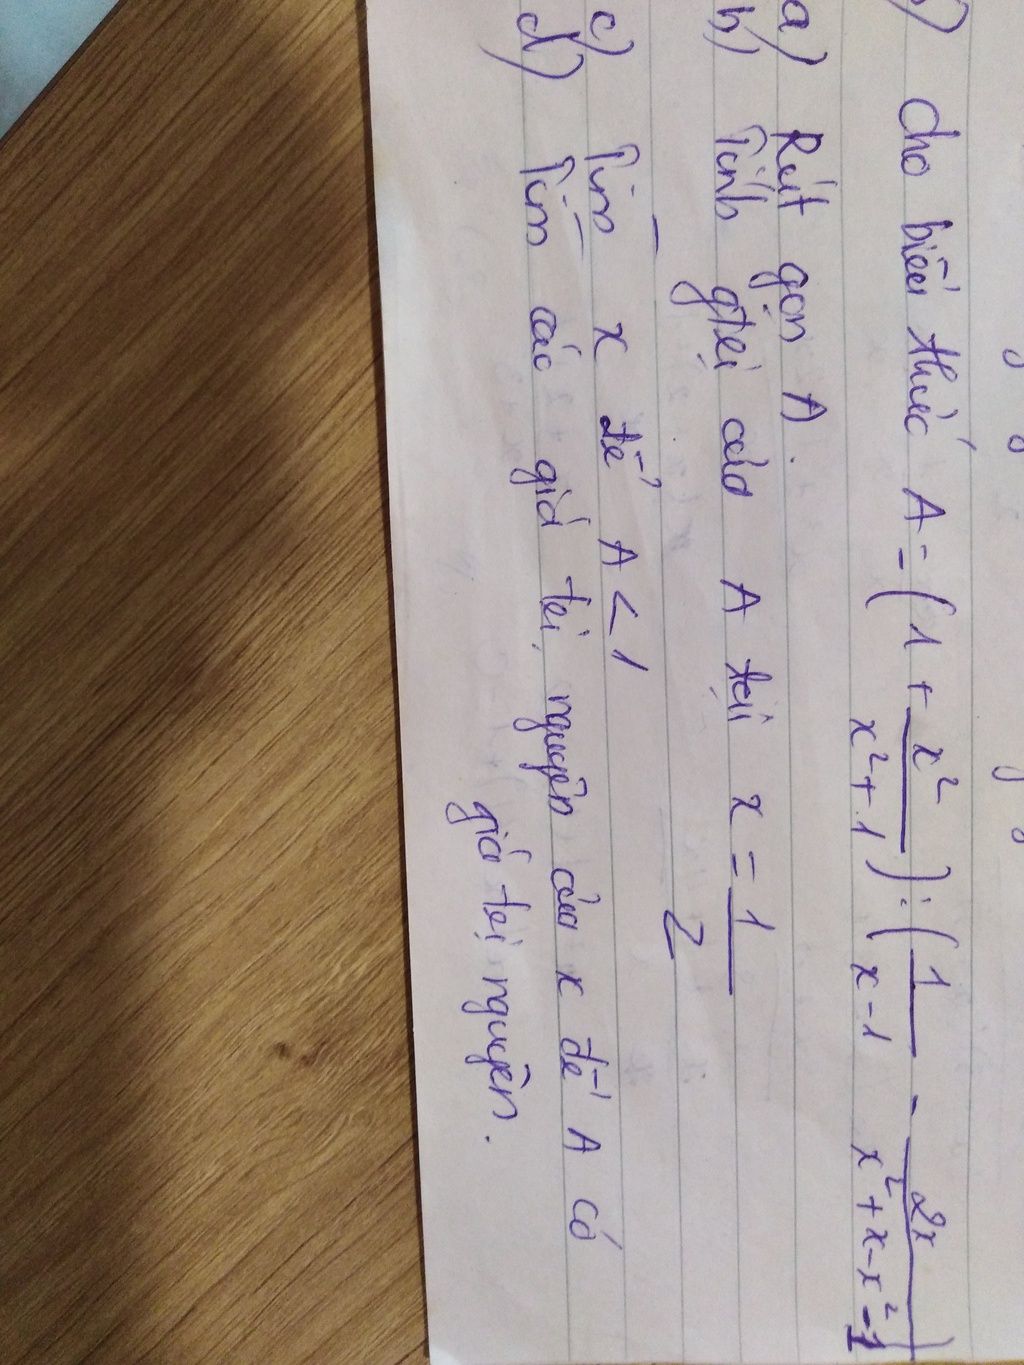 Cho biểu thức A = (1 + x²/x²+1) : (1/x-1 - 2x/x²+x-x²-1)
a) Rút gọn A.
b) Tính gtrị của A tại x = 1/2
c) Tìm x để A < 1
d) Tìm các giá trị nguyên của x để A có
giá trị nguyên.